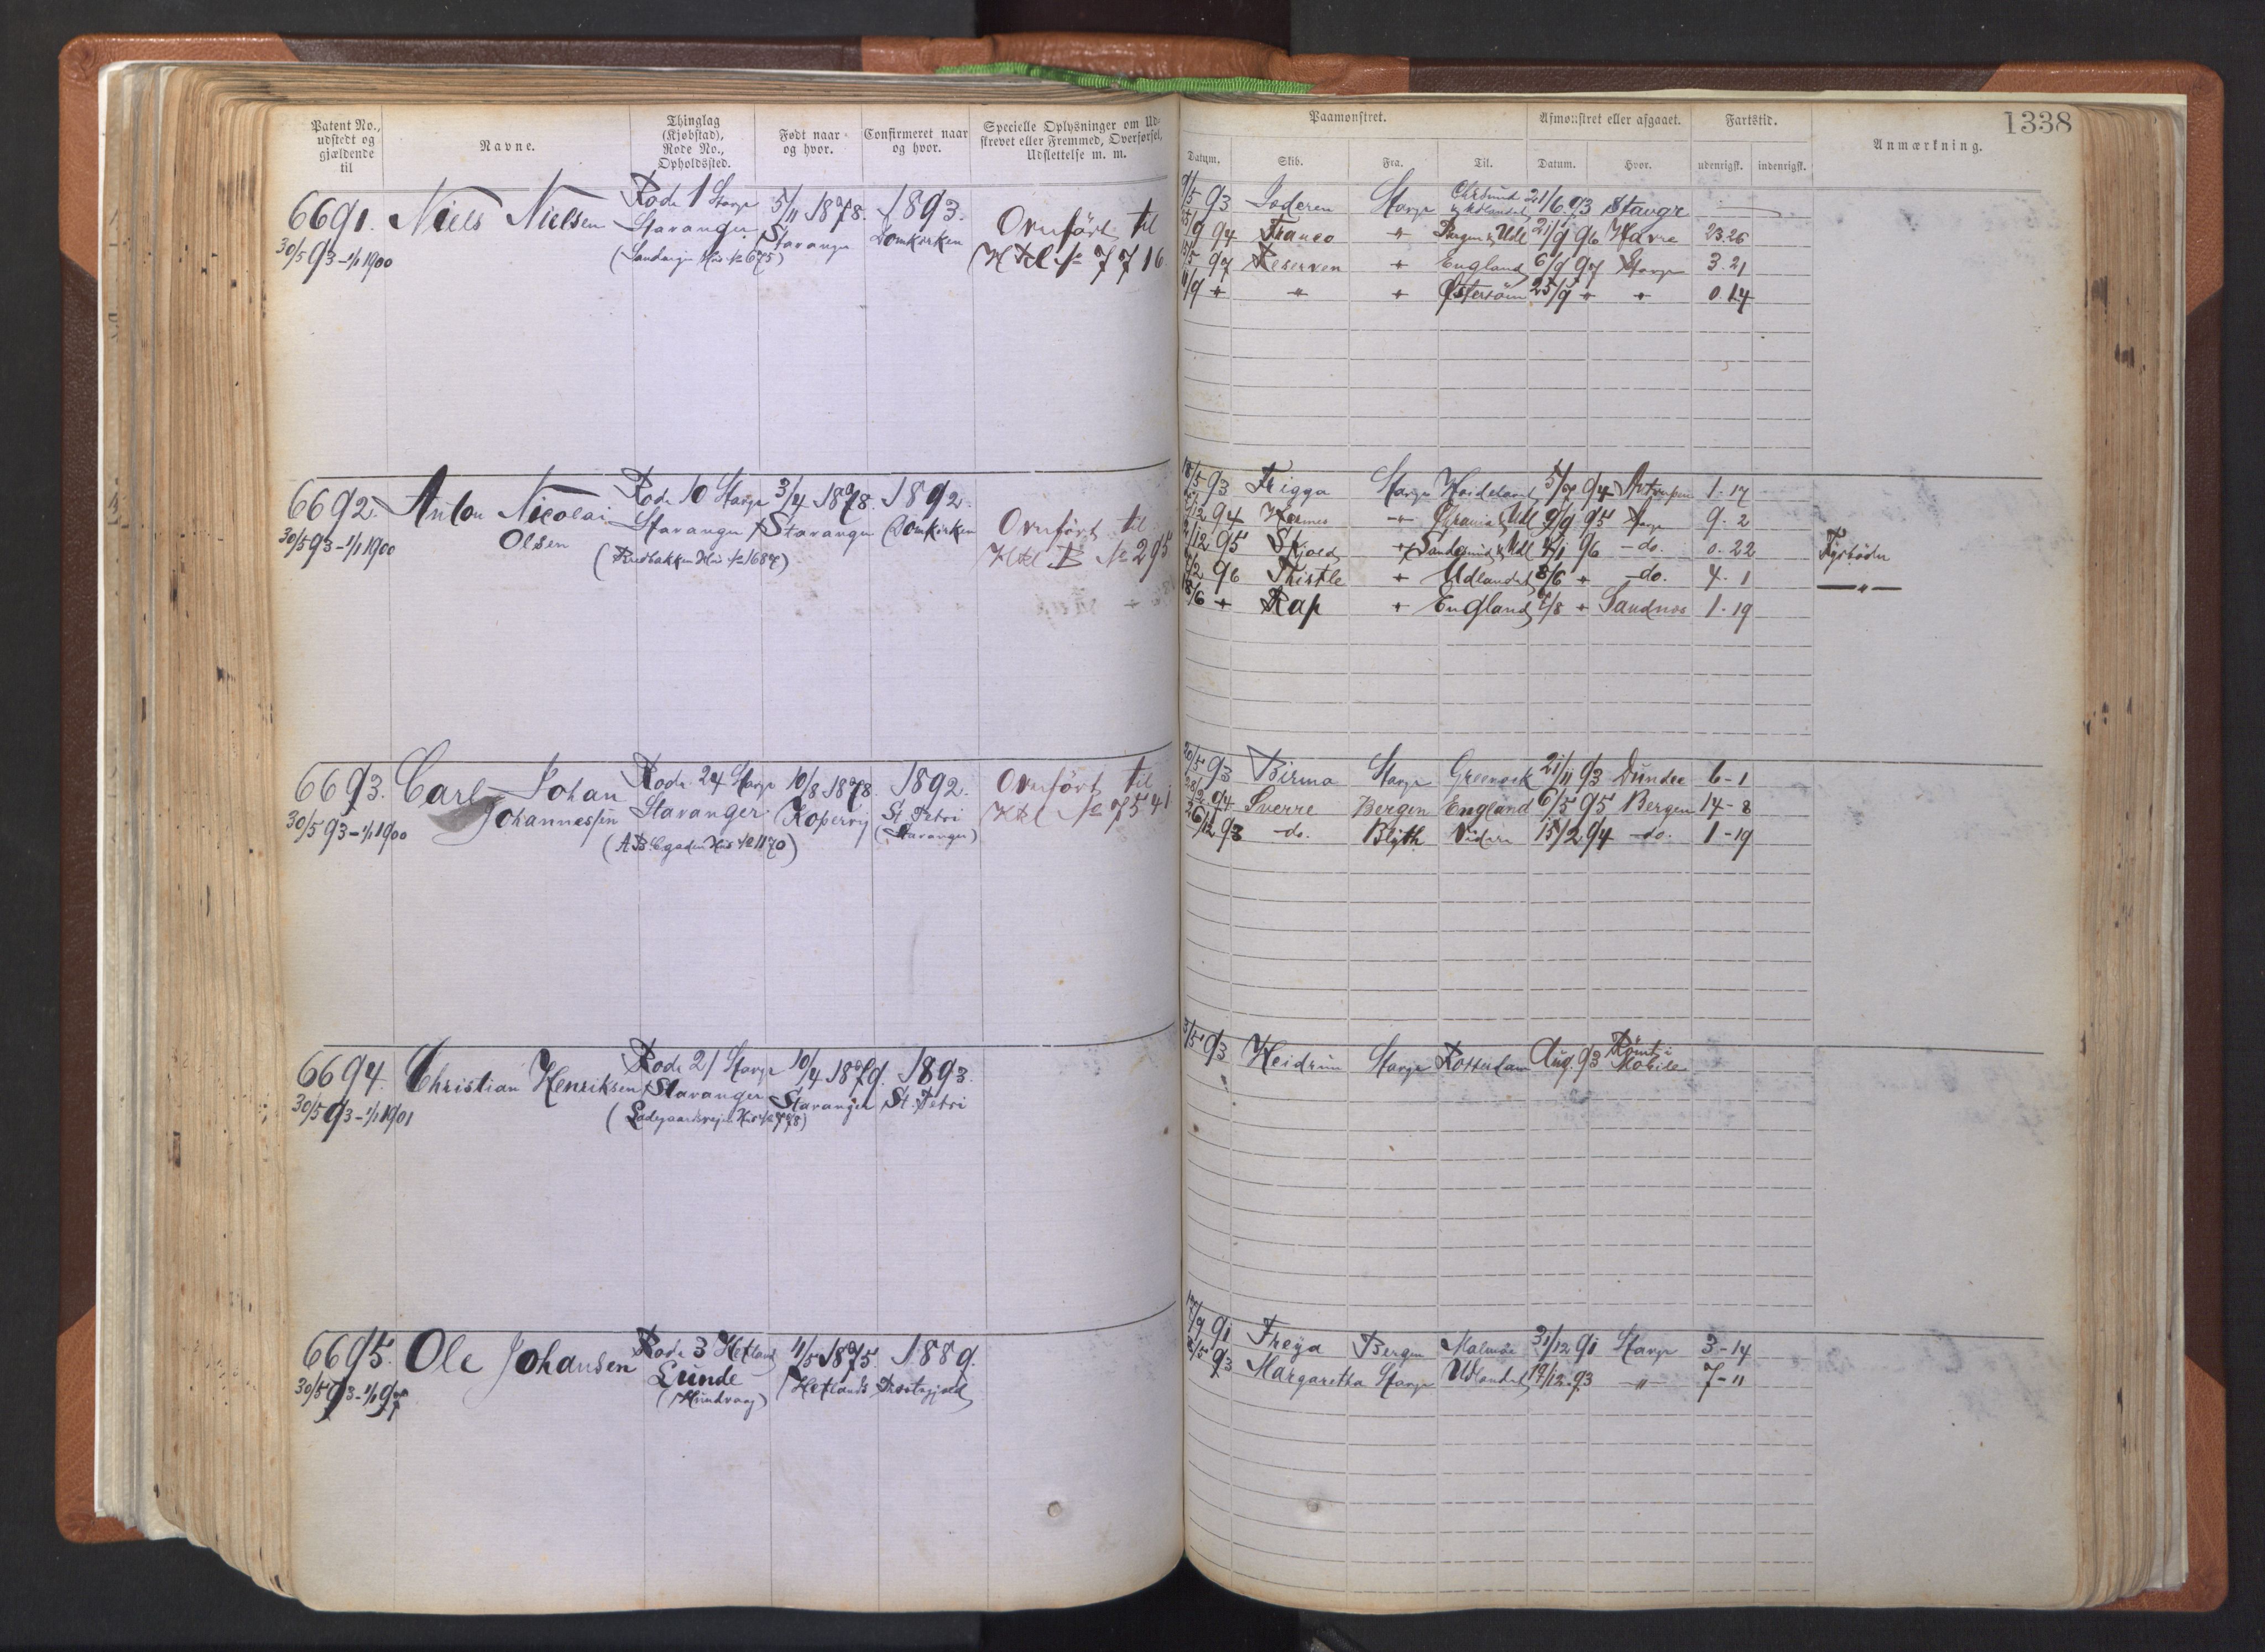 1338
Patent No., udstedt og gjældende til
Navne.
Thinglag (Kjøbstad), Rode No., Opholdssted.
Født naar og hvor.
Confirmeret naar og hvor.
Specielle Oplysninger om Udskrevet eller Fremmed, Overførsel, Udslettelse m. m.
Paamønstret.
Afmønstret eller afgaaet.
Fartstid.
Anmærkning.
Datum. Skib. Fra. Til. Datum. Hvor. udenrigsk. indenrigsk.
6691. Niels Nielsen Rode 1 Stavgr 5/11 1878. 1893. Overført til
30/5 93 - 1/1 1900 Stavanger Stavanger Domkirken Htl № 7716
Hus № 675)
9/5 93 Jæderen Stavgr Chrsund & Udlandet 21/6 93 Stavgr
94 Franco " Bergen & Udl 21/9 96 Havre 23.26
97 Reserven " England 6/9 97 Stavgr 3.21
11/9 " " " Østersöen 25/9 " " 0.14
6692. Anton Nicolai Rode 10 Stavgr 3/4 1878. 1892.
30/5 93 - 1/1 1900 Olsen Stavanger Stavanger Domkirken Overført til
(Rudbakken Hus № 1687) Htl B № 295
18/5 93 Frigga Stavgr 5/7 94 Antwerpen 1.17
12 94 Hermes " Chrania & Udl 9/9 95 Stavgr 9.2
12 95 Skjold " & Udl 4/1 96 -do. 0.22 Fyrbøder
2 96 Thistle " Udlandet 8/6 " -do. 4.1 — " —
18/6 " Rap " England 7/8 " Sandnes 1.19
6693. Carl Johan Rode 24 Stavgr 10/8 1878. 1892. Overført til
30/5 93 - 1/1 1900 Johannessen Stavanger Kopervig St. Petri Htl № 7541
(ABCgaden Hus № 1170) (Stavanger)
20/5 93 Birma Stavgr Greenock 21/11 93 Dundee 6-1
28/2 94 Sverre Bergen England 6/5 95 Bergen 14-8
26/12 93 -do. Blyth Videre 15/2 94 -do. 1-19
6694. Christian Henriksen Rode 21 Stavgr 10/4 1879. 1893.
30/5 93 - 1/1 1901 Stavanger Stavanger St. Petri
(Ladegaardsvejen Hus № 778)
3/5 93 Heidrun Stavgr Rotterdam Aug. 93 Römt i Mobile
6695. Ole Johansen Rode 3 Hetland 11/5 1875. 1889.
30/5 93 - 1/1 97 Lunde Hetlands Præstegjæld
(Hundvaag)
17/9 91 Freya Bergen Malmöe 31/12 91 Stavgr 3-14
2/5 93 Margaretha Stavgr Udlandet 19/12 93 " 7-11